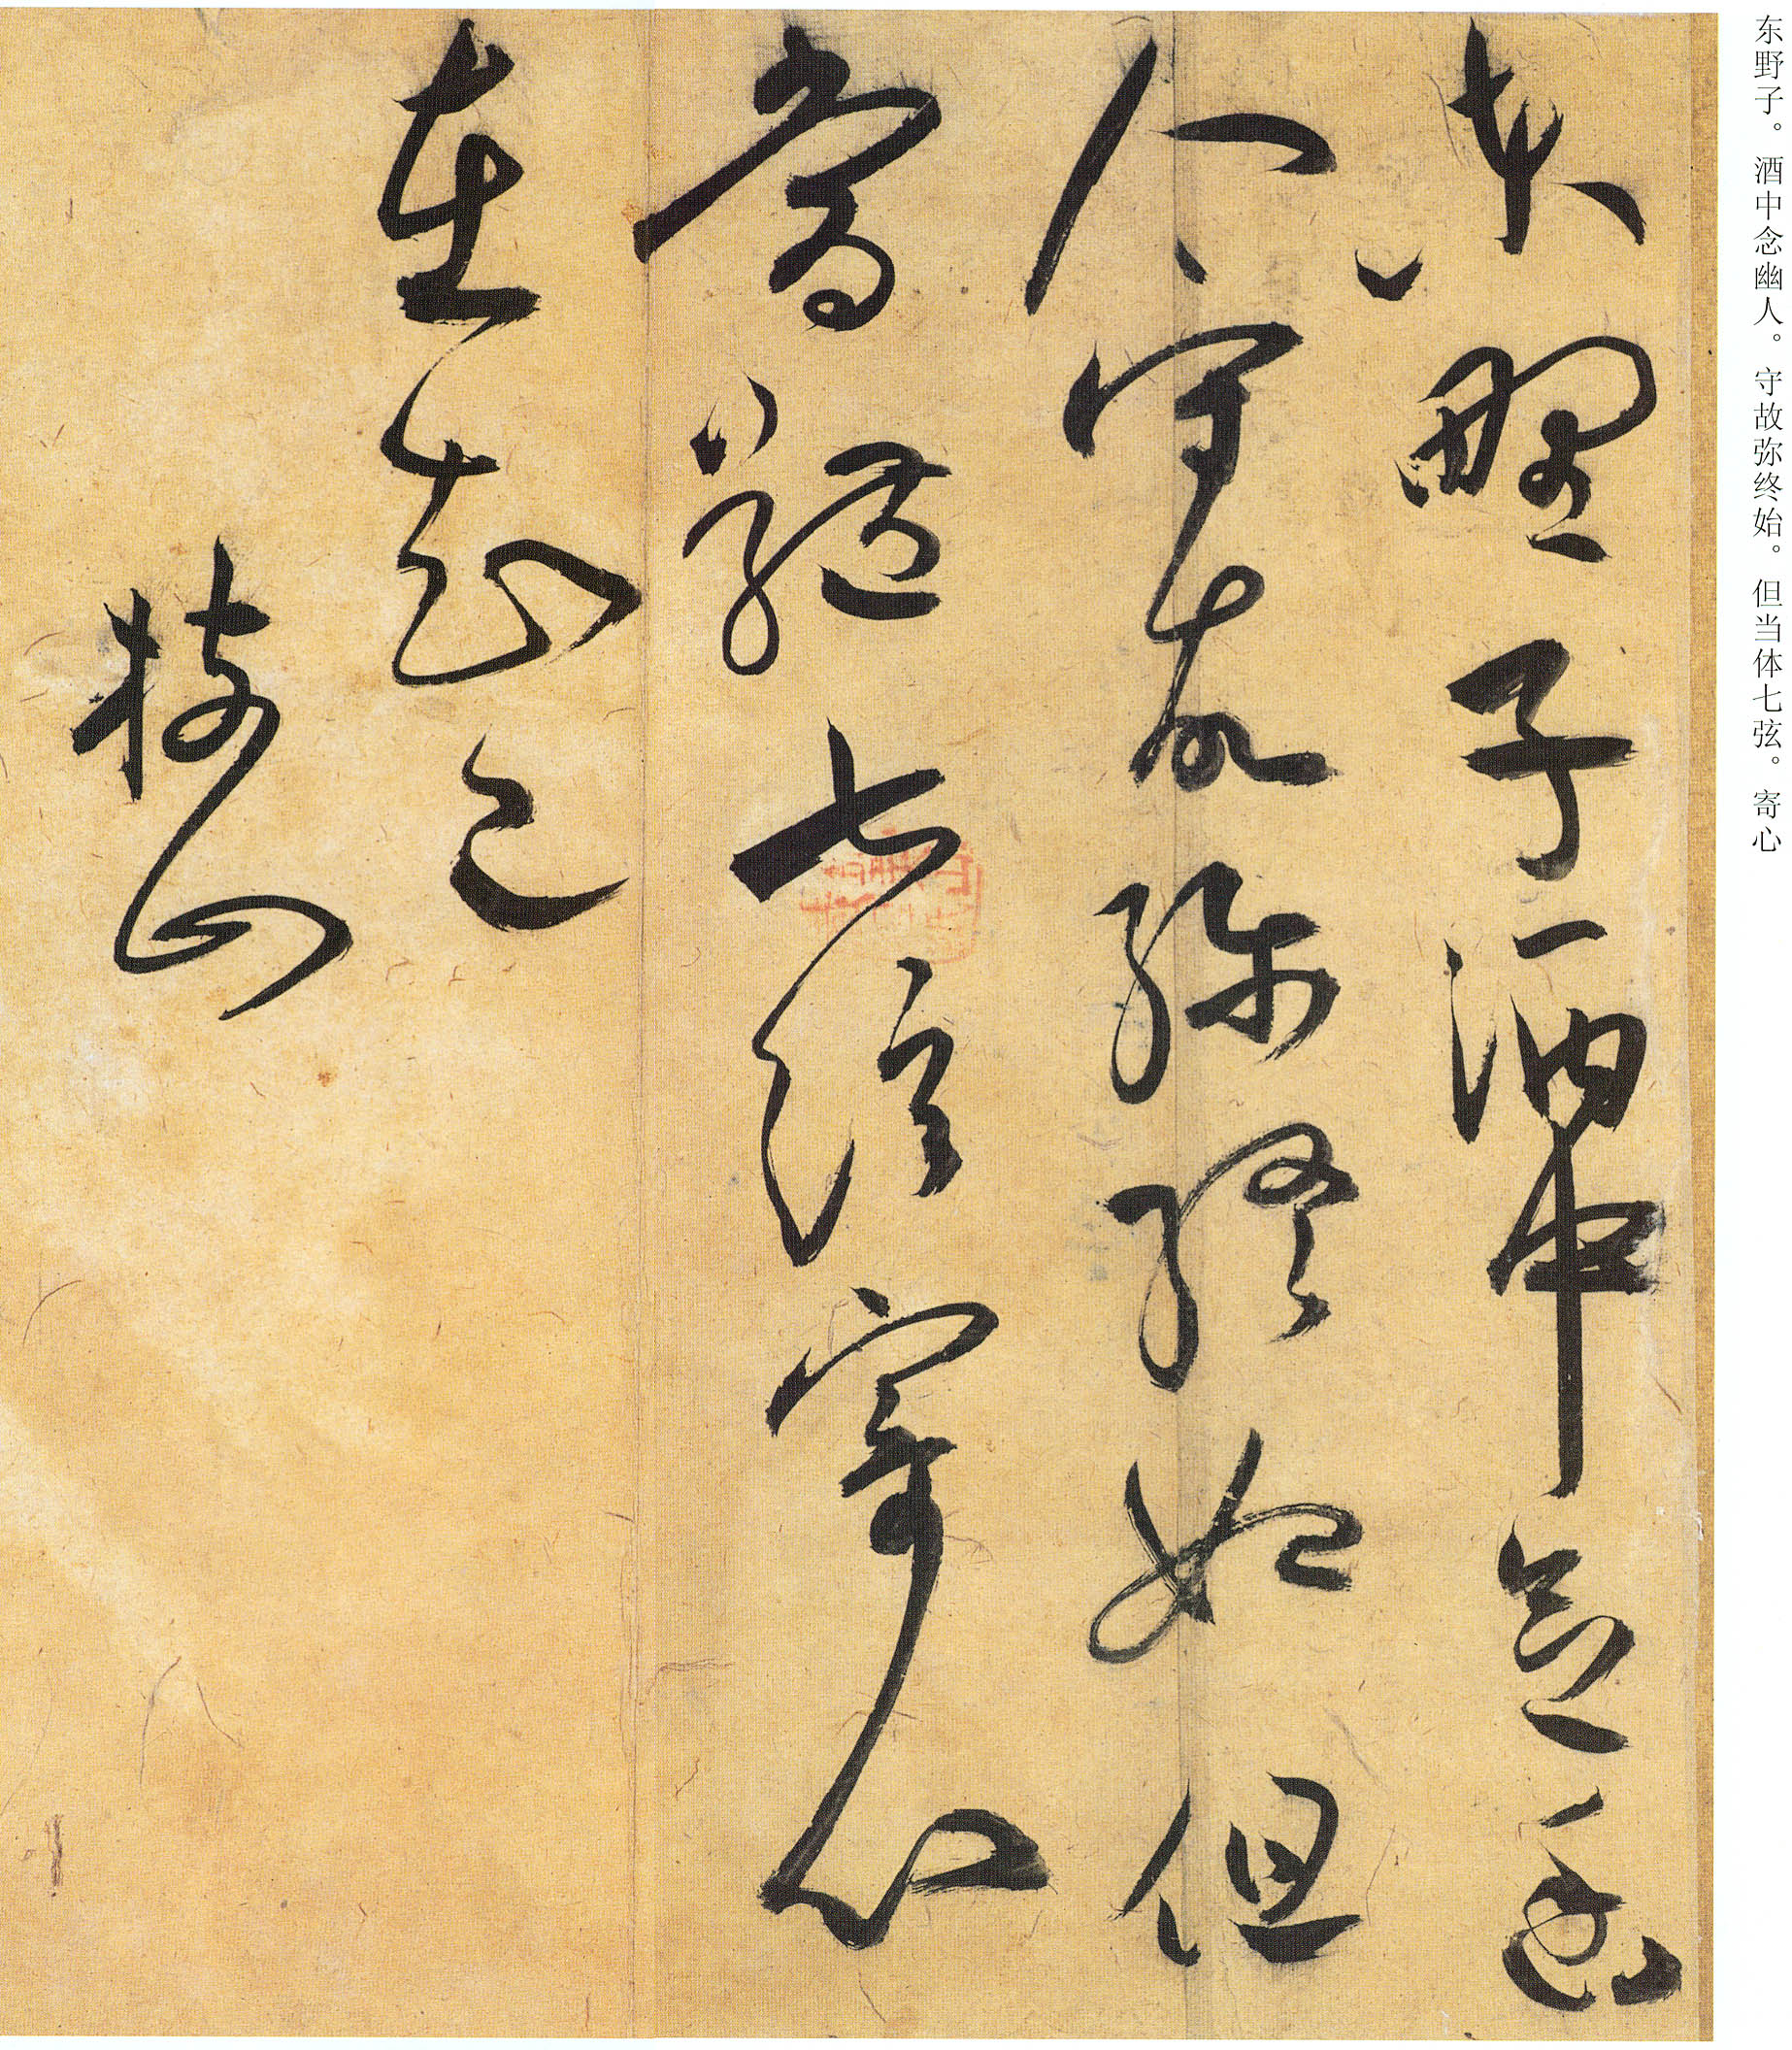 东野子。酒中念幽人。守故弥终始。但当体七弦。寄心
東野子酒中念幽
人守故弥終始但
當體七弦寄心
在知己
枝山